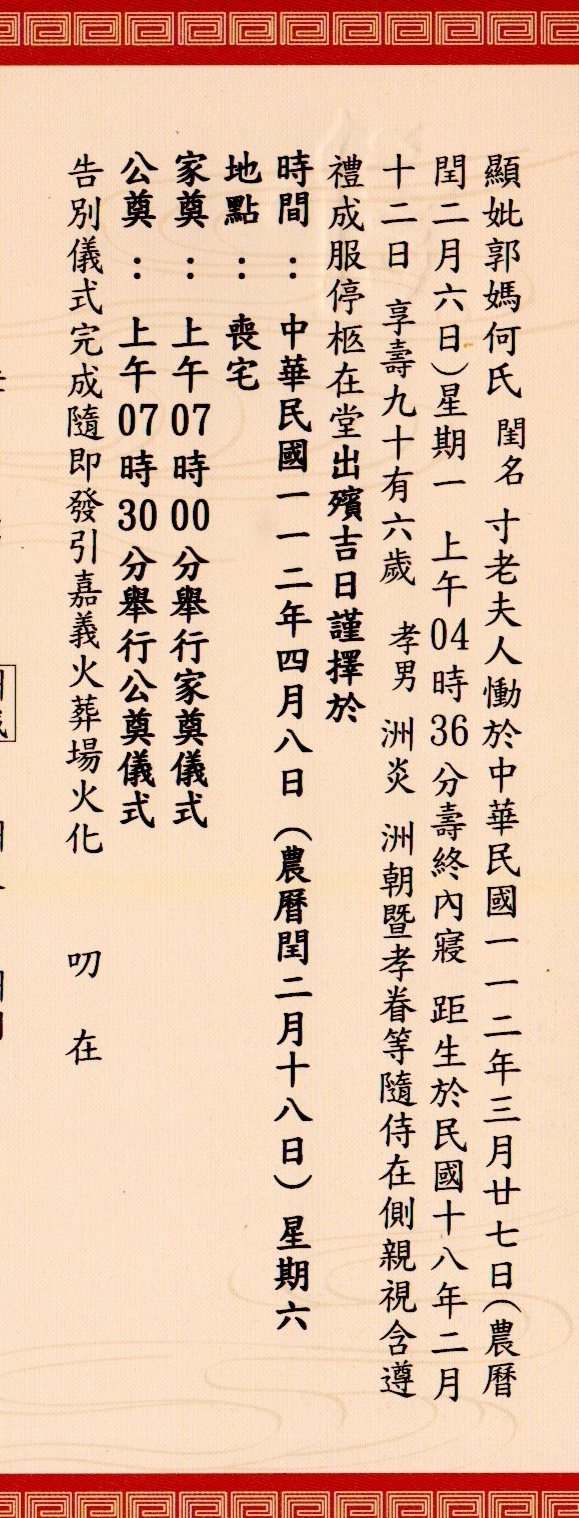 顯妣郭媽何氏 閨名 寸老夫人慟於中華民國一一二年三月廿七日（農曆
閏二月六日）星期一 上午04時36分壽終內寢 距生於民國十八年二月
十二日 享壽九十有六歲 孝男 洲炎 洲朝暨孝眷等隨侍在側親視含遵
禮成服停柩在堂出殯吉日謹擇於
時間：中華民國一一二年四月八日（農曆閏二月十八日）星期六
地點：喪宅
家奠：上午07時00分舉行家奠儀式
公奠：上午07時30分舉行公奠儀式
告別儀式完成隨即發引嘉義火葬場火化 叨 在